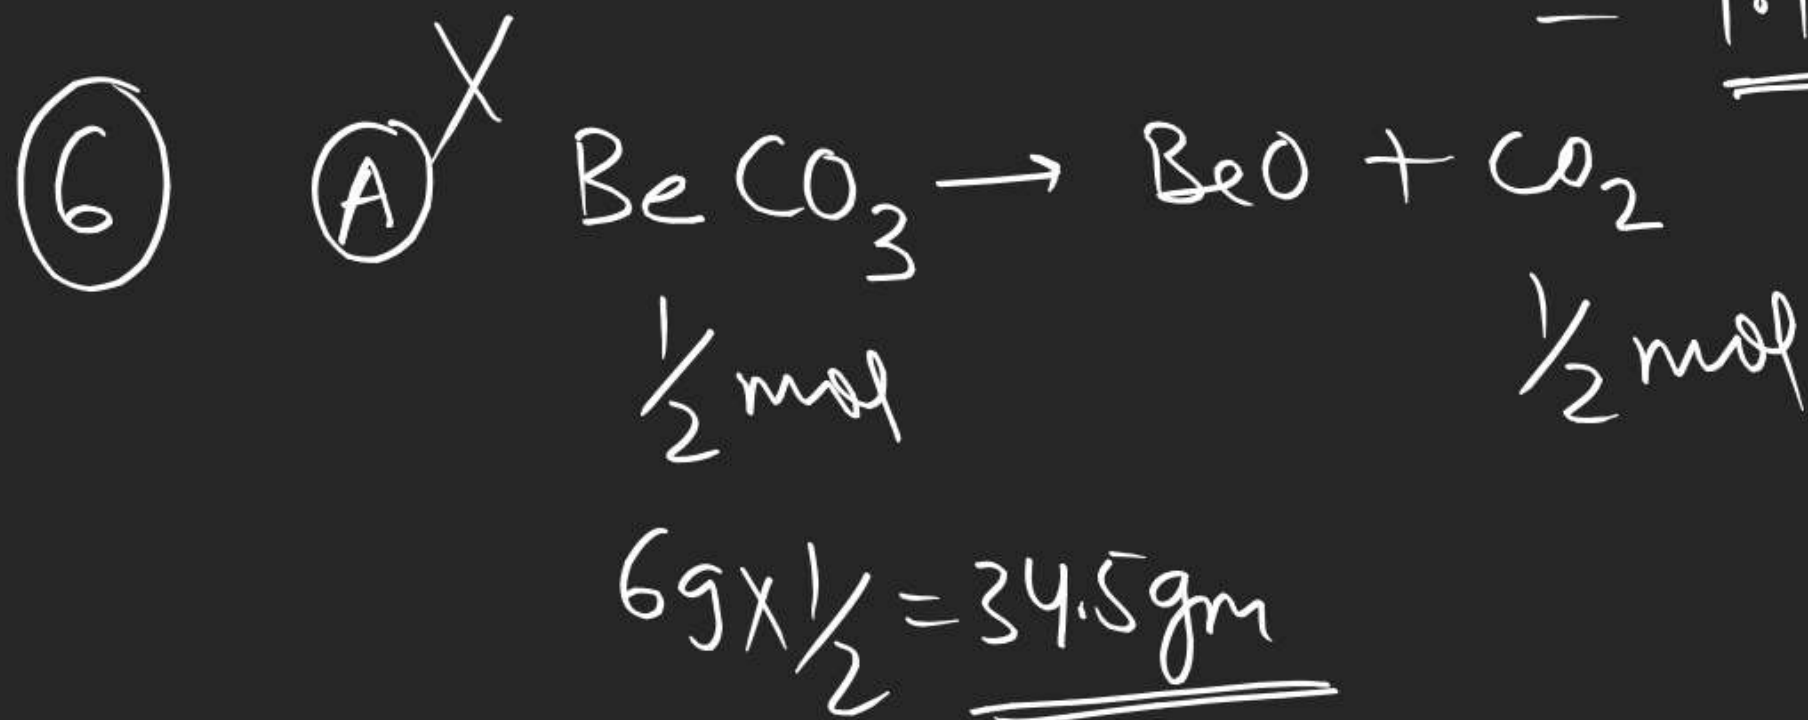 6 A X BeCO3 → BeO + CO2
1/2 mol 1/2 mol
69 X 1/2 = 34.5 gm